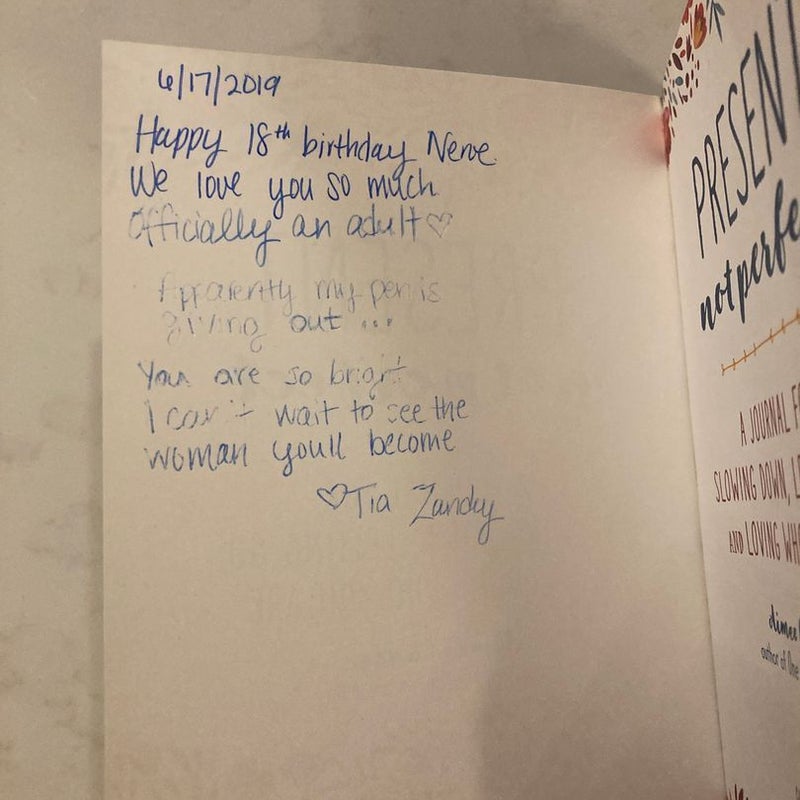 6/17/2019
Happy 18th birthday Neve
We love you so much
Officially an adult♡
Apparently my pen is
giving out ...
You are so bright
I can't wait to see the
woman youll become
♡Tia Zandy
PRESENT
not perfe
A JOURNAL F
SLOWING DOWN, LE
AND LOVING WHO
aimee
author of One